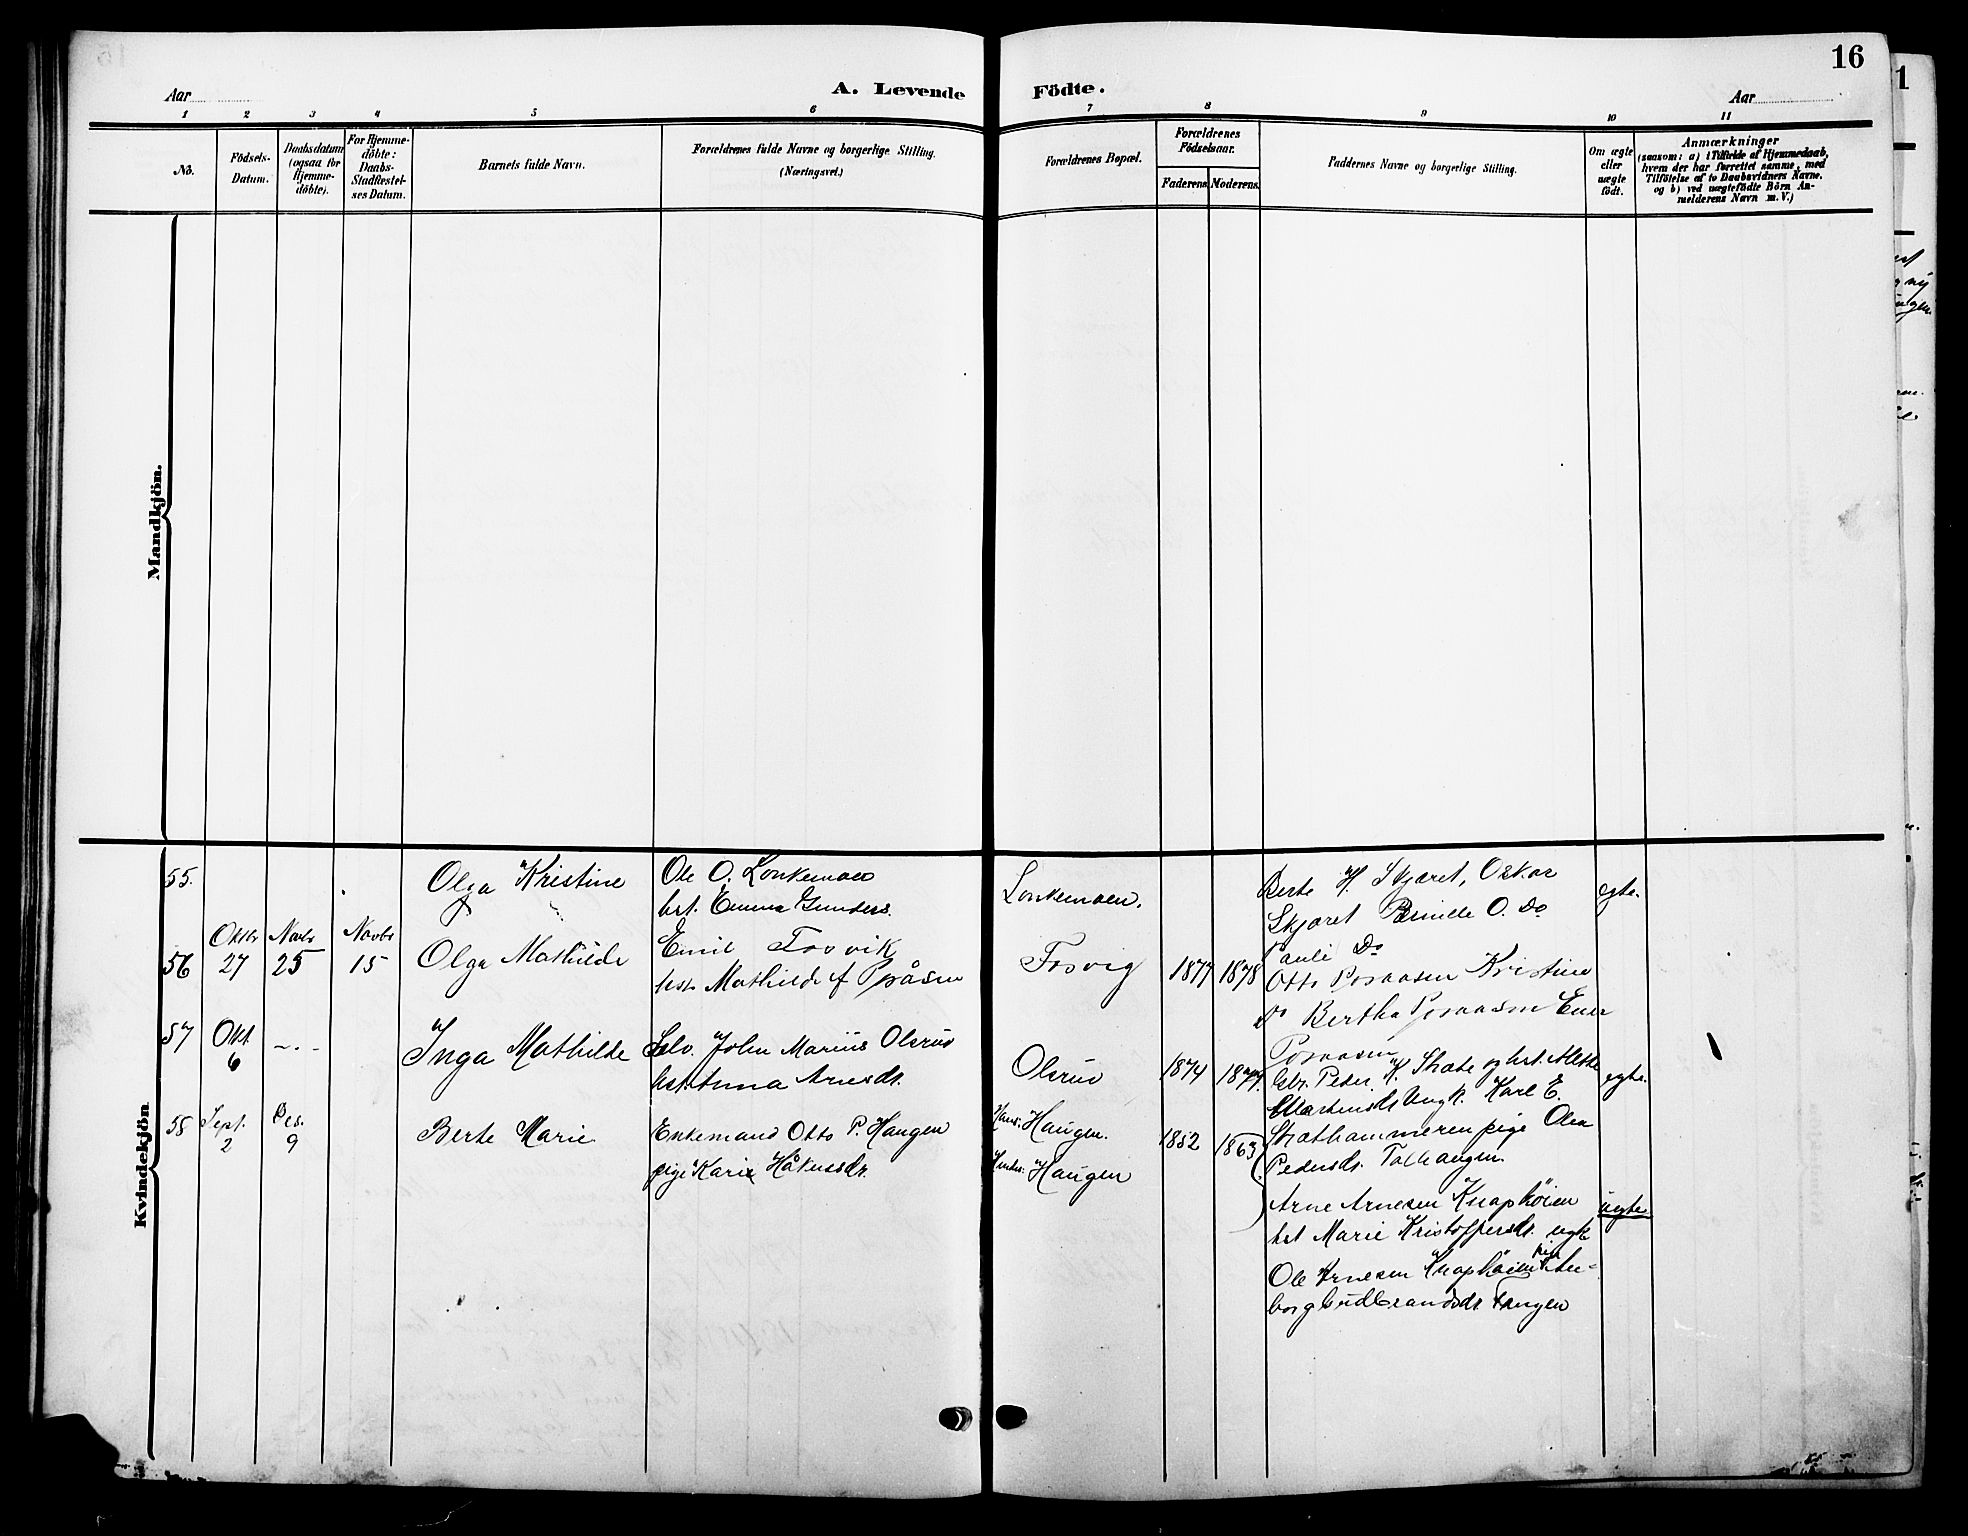 16
Aar
A. Levende Födte.
Aar
1 2 3 4 5 6 7 8 9 10 11
No.
Födsels-
Datum.
Daabsdatum
(ogsaa for
Hjemme-
döbte).
For Hjemme-
döbte:
Daabs-
Stadfestel-
ses Datum.
Barnets fulde Navn.
Forældrenes fulde Navne og borgerlige Stilling.
(Næringsvei.)
Forældrenes Bopæl.
Forældrenes
Födselsaar.
Faderens Moderens.
Faddernes Navne og borgerlige Stilling.
Om ægte
eller
uægte
födt.
Anmærkninger
(saasom: a) i Tilfælde af Hjemmedaab,
hvem der har forrettet samme, med
Tilföielse af to Daabsvidners Navne.
og b) ved uægtefödte Börn An-
melderens Navn m. V.)
Mandkjön.
Kvindekjön
55.
Olga Kristine
Ole O. Lonkemoen
hst. Emma Gunders.
Lonkemoen.
Berte H. Skjæret, Oskar
Skjæret Pernille O. Do
Pauli Do
egte.
56
Oktbr
27
Novbr
25
Novbr
15
Olga Mathilde
Emil Fosvik
hst. Mathilde f
Fosvig
1877
1878
Otto Kristine
Do Bertha
57
Okt.
6
Inga Mathilde
Selv. John Marius Olsrud
hst. Anna Arnesdt.
Olsrud
1874
1877.
Gbr. Peder K. og hst.
Martinsdt Ungk. Karl E.
pige Olea
Pedersdt.
egte.
58
Sept.
2
Des.
9
Berte Marie
Enkemand Otto P. Haugen
pige Karie Håkensdr.
Hans: Haugen.
Hendes: Haugen
1852
1863
Arne Arnesen Knaphöien
hst Marie Kristoffersdt. ungk
Ole Arnesen Knaphöien pige In-
borg Gudbrandsdt Haugen
uegte